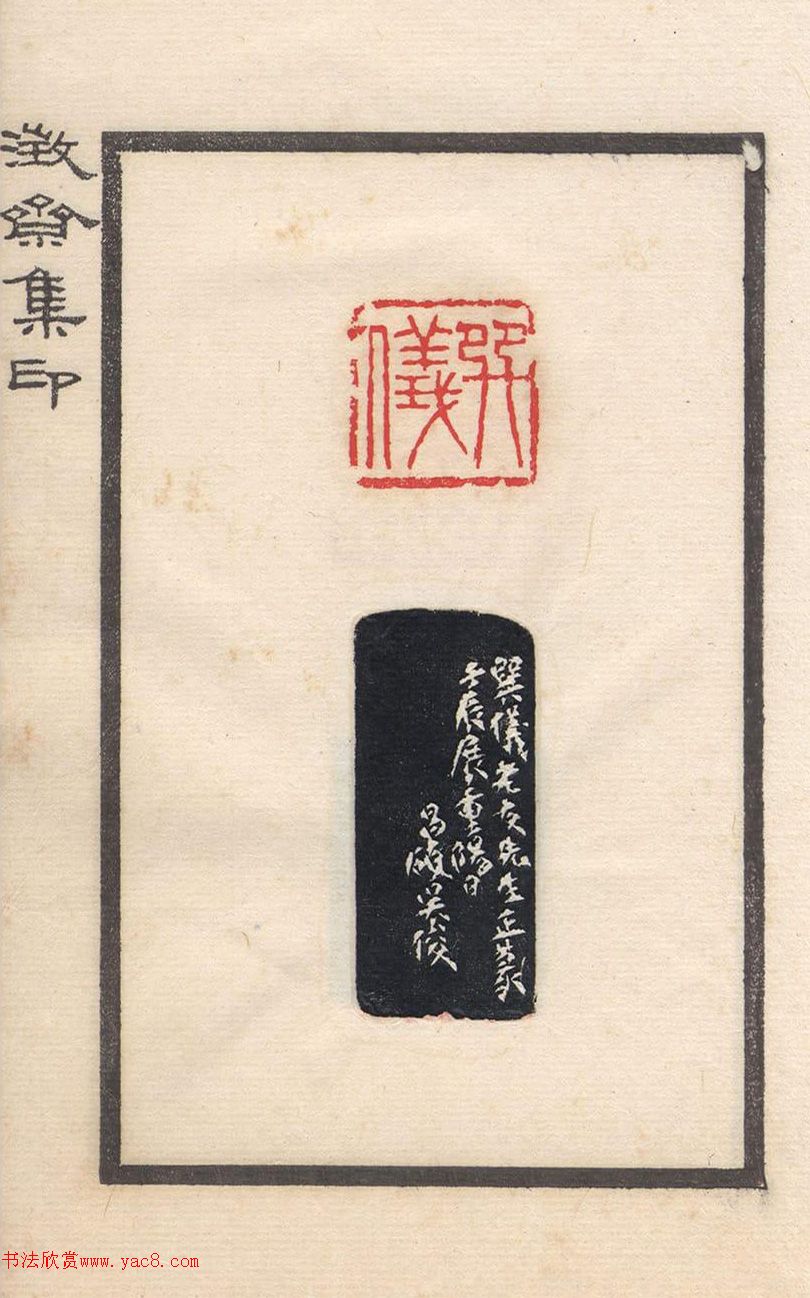 澂齋集印
巽儀
巽儀老友先生正篆
壬辰展重陽日
昌碩吳俊
书法欣赏www.yac8.com